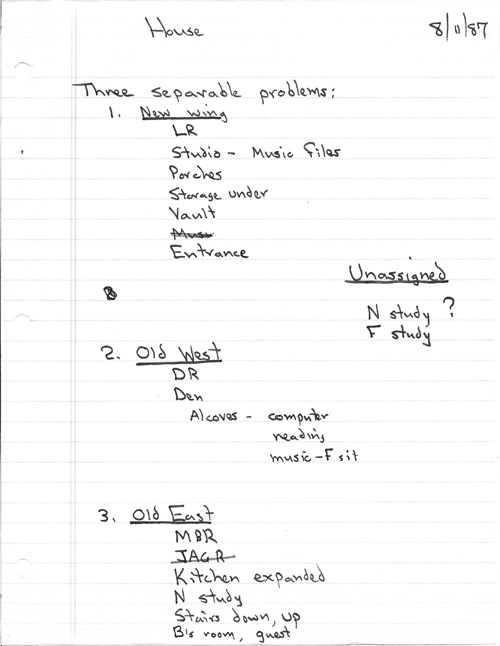 House 8/11/87
Three separable problems:
1. New wing
LR
Studio - Music files
Porches
Storage under
Vault
Entrance
Unassigned
N study ?
F study
2. Old West
DR
Den
Alcoves - computer
reading
music - F sit
3. Old East
MBR
JAGR
Kitchen expanded
N study
Stairs down, up
B's room, guest